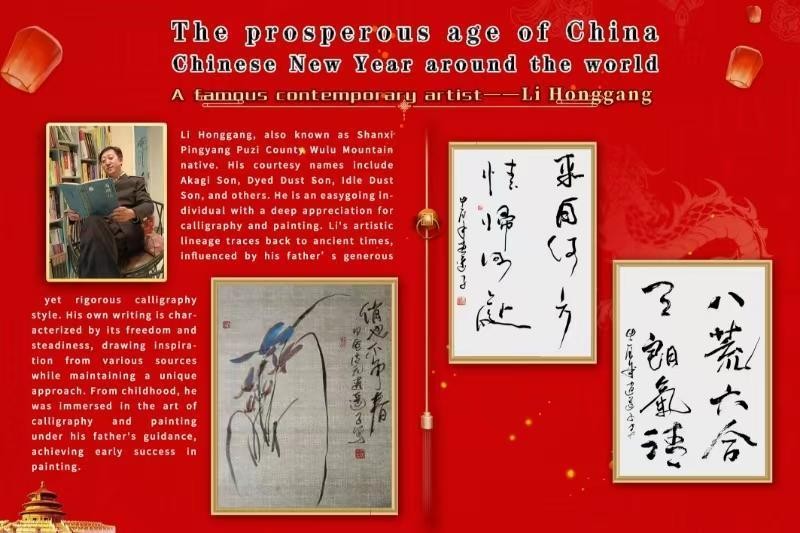 The prosperous age of China
Chinese New Year around the world
A famous contemporary artist——Li Honggang
Li Honggang, also known as Shanxi
Pingyang Puzi County Wulu Mountain
native. His courtesy names include
Akagi Son, Dyed Dust Son, Idle Dust
Son, and others. He is an easygoing in-
dividual with a deep appreciation for
calligraphy and painting. Li's artistic
lineage traces back to ancient times,
influenced by his father's generous
yet rigorous calligraphy
style. His own writing is char-
acterized by its freedom and
steadiness, drawing inspira-
tion from various sources
while maintaining a unique
approach. From childhood, he
was immersed in the art of
calligraphy and painting
under his father's guidance,
achieving early success in
painting.
俏也不争春
来自何方
情归何处
八荒六合
天朗气清